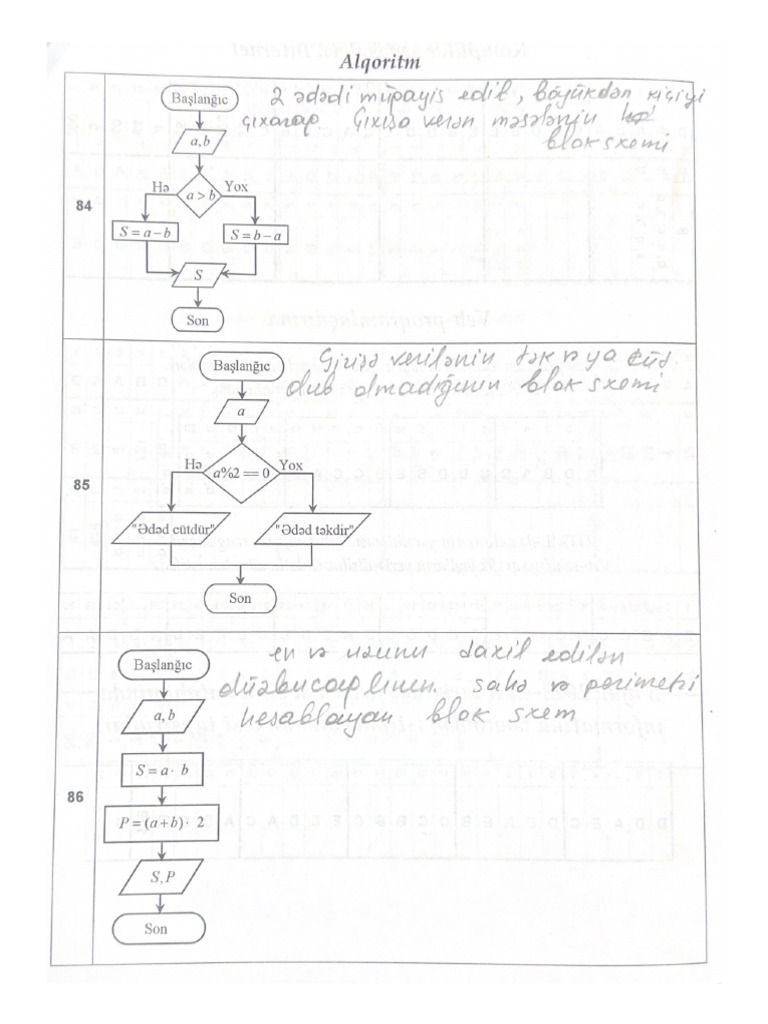 Alqoritm
Başlanğıc
2 ədədi müqayis edib, böyükdən kiçiyi
çıxaraq Çıxışa verən məsələnin
blok sxemi
a,b
Hə
Yox
a > b
84
S = a − b
S = b − a
S
Son
Başlanğıc
verilənin tək və ya cüt
olmadığının blok sxemi
a
Hə
a%2 == 0
Yox
85
"Ədəd cütdür"
"Ədəd təkdir"
Son
Başlanğıc
en və uzunu daxil edilən
düzbucaqlının sahə və perimetri
hesablayan blok sxem
a,b
S = a · b
86
P = (a+b) · 2
S,P
Son